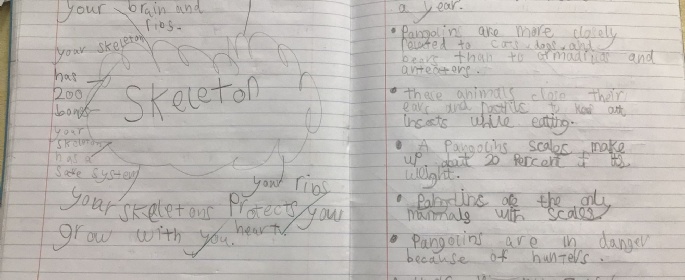 your brain and
ribs.
your skeleton
has
200
bones
your
skeleton
has a
safe system
Skeleton
your ribs
your skeletons Protects your
grow with you. heart.
a year.
• Pangolin are more closely
related to cats, dogs and
bears than to armadillos and
anteaters.
• these animals close their
ears and nostrils to keep out
insects while eating.
• A Pangolins scales make
up about 20 Percent of its
weight.
• Pangolins are the only
mammals with scales
• Pangolins are in danger
because of hunters.